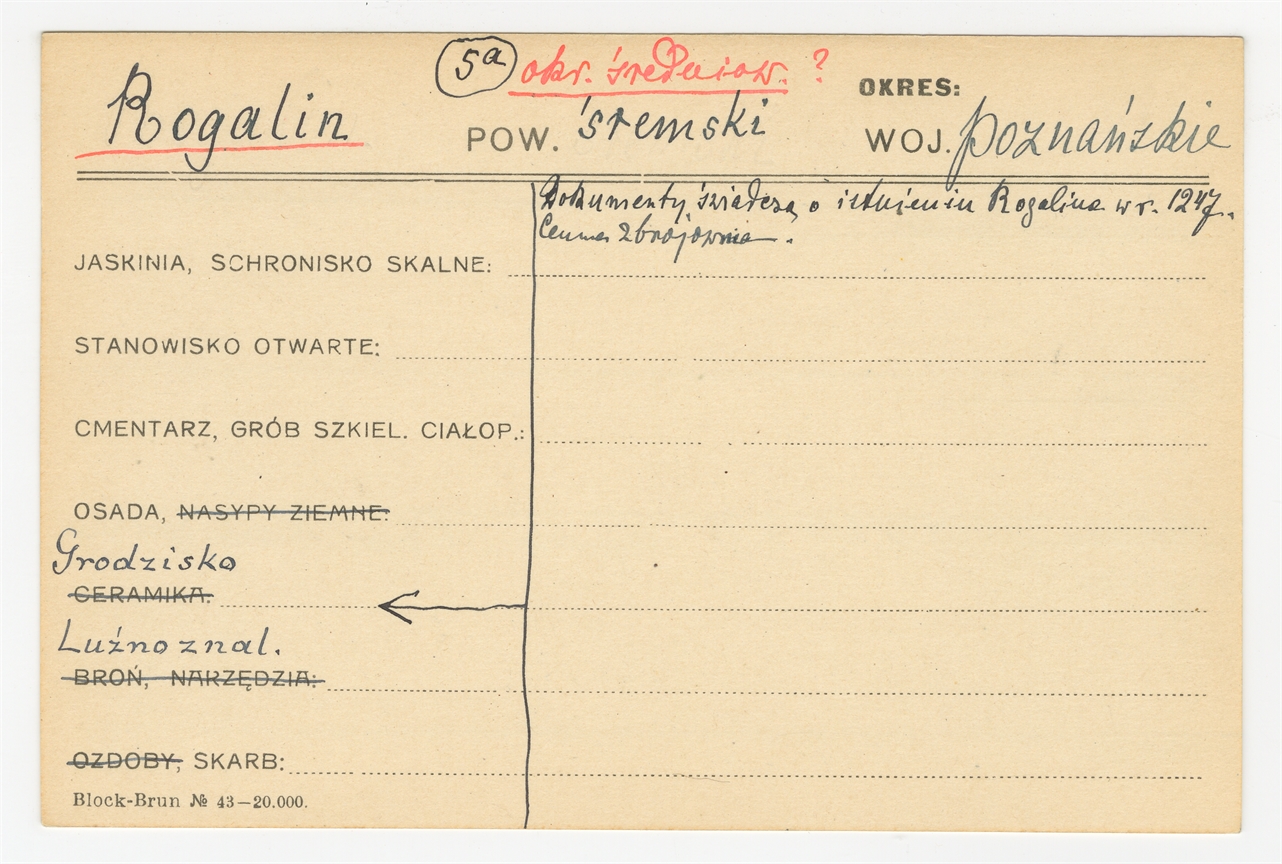 5a okr. średniow. ?
OKRES:
Rogalin POW. śremski WOJ. poznańskie
Dokumenty świadczą o istnieniu Rogalina w r. 1247.
Cenna zbrojownia.
JASKINIA, SCHRONISKO SKALNE:
STANOWISKO OTWARTE:
CMENTARZ, GRÓB SZKIEL. CIAŁOP.:
OSADA, NASYPY ZIEMNE:
Grodzisko
CERAMIKA:
Luźno znal.
BROŃ, NARZĘDZIA:
OZDOBY, SKARB:
Block-Brun № 43—20.000.